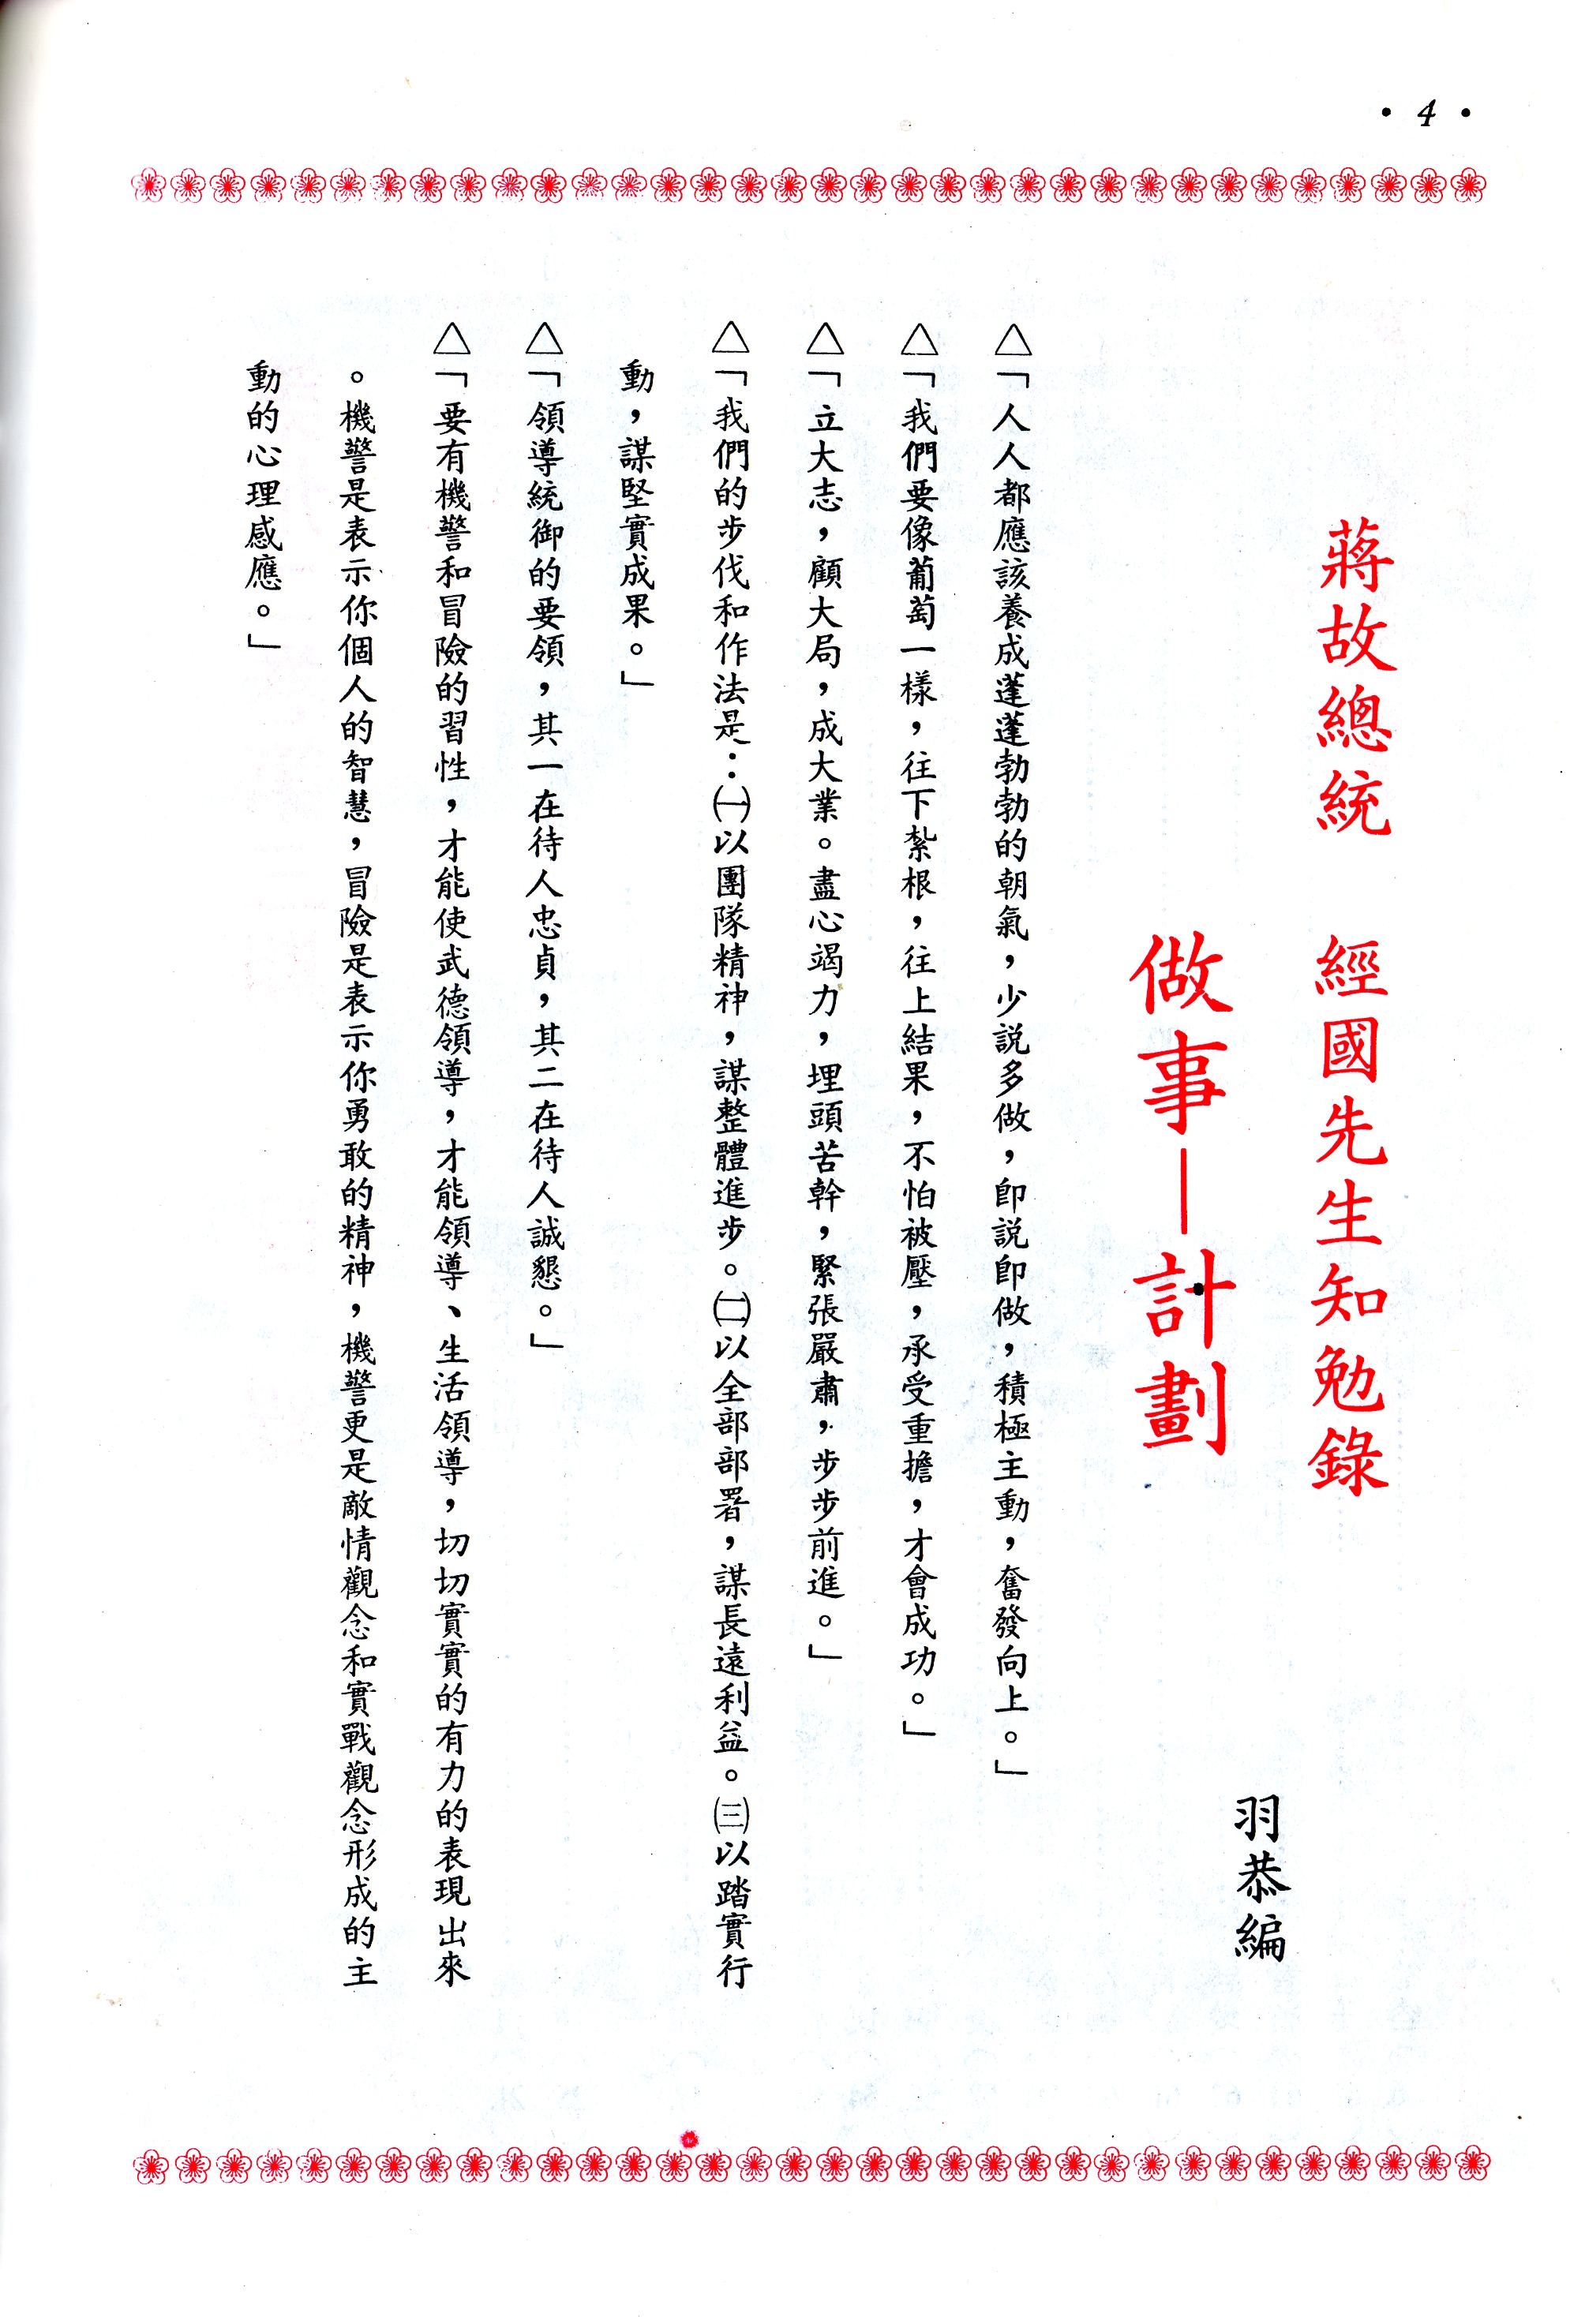 • 4 •
蔣故總統　經國先生知勉錄
做事—計劃
羽恭編
△「人人都應該養成蓬蓬勃勃的朝氣，少説多做，卽説卽做，積極主動，奮發向上。」
△「我們要像葡萄一樣，往下紮根，往上結果，不怕被壓，承受重擔，才會成功。」
△「立大志，顧大局，成大業。盡心竭力，埋頭苦幹，緊張嚴肅，步步前進。」
△「我們的步伐和作法是：㈠以團隊精神，謀整體進步。㈡以全部部署，謀長遠利益。㈢以踏實行
動，謀堅實成果。」
△「領導統御的要領，其一在待人忠貞，其二在待人誠懇。」
△「要有機警和冒險的習性，才能使武德領導，才能領導、生活領導，切切實實的有力的表現出來
。機警是表示你個人的智慧，冒險是表示你勇敢的精神，機警更是敵情觀念和實戰觀念形成的主
動的心理感應。」